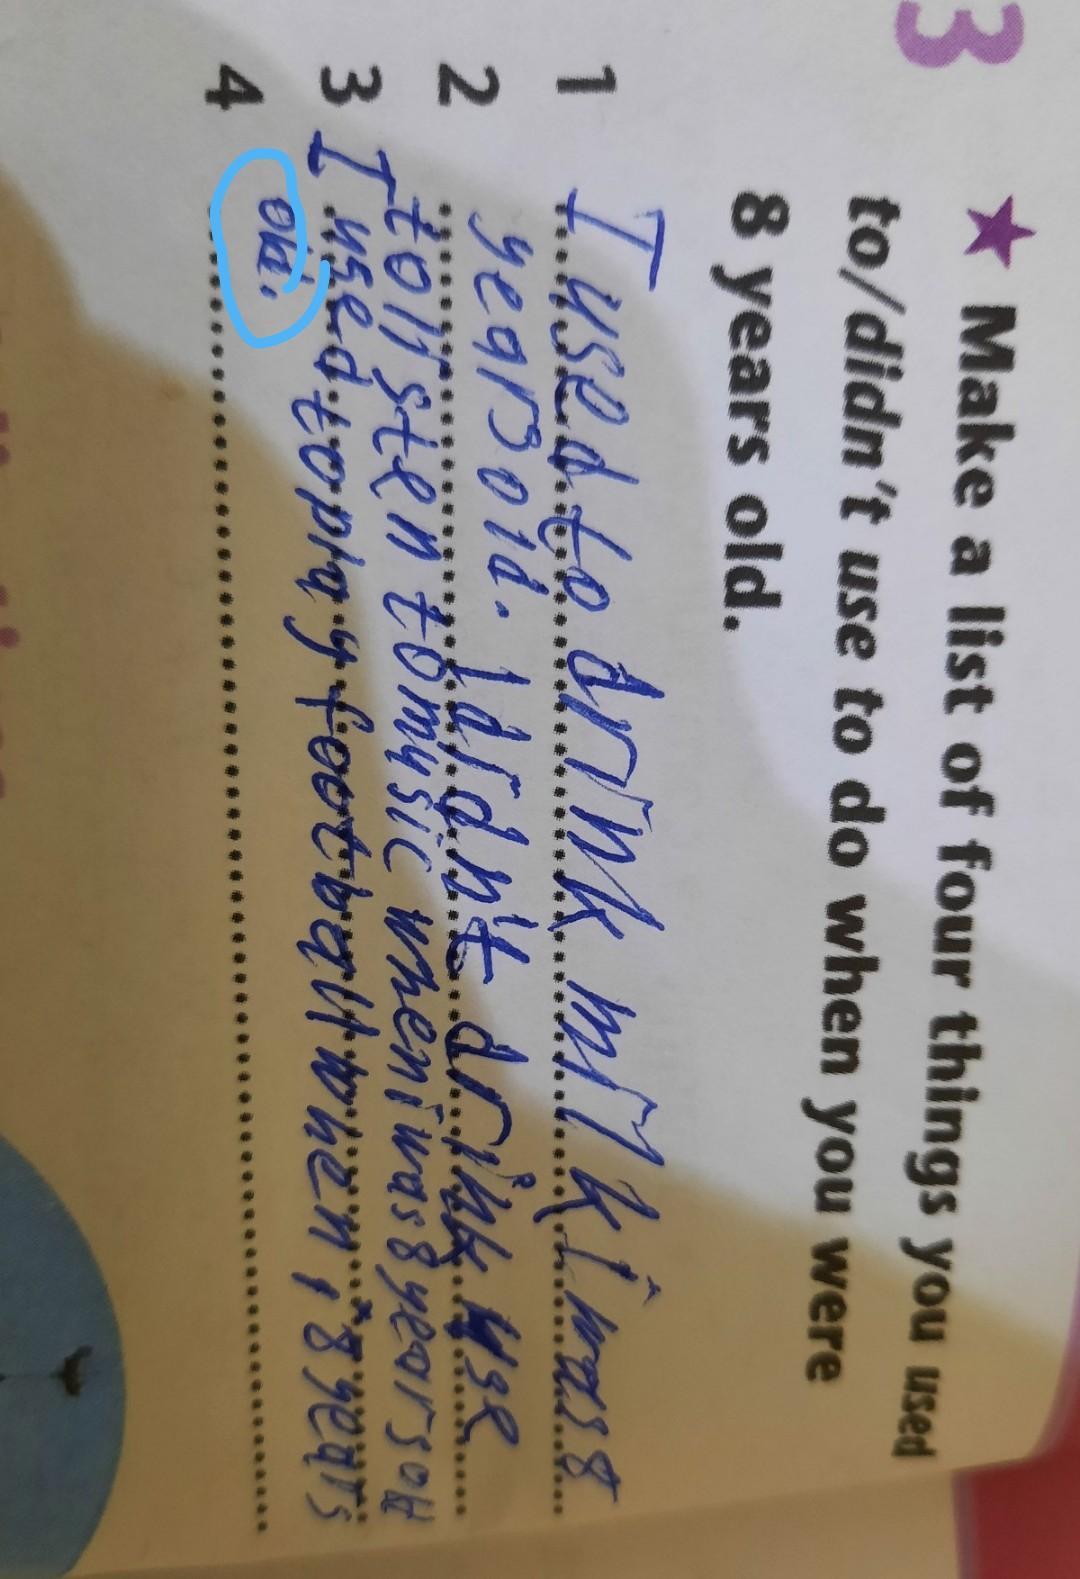 3 ★ Make a list of four things you used
to/didn't use to do when you were
8 years old.
1 I used to drink milk i was 8
years old. I didn't drink use
2 to listen to music when i was 8 years old
3 I used to play football when i 8 years
4 old.